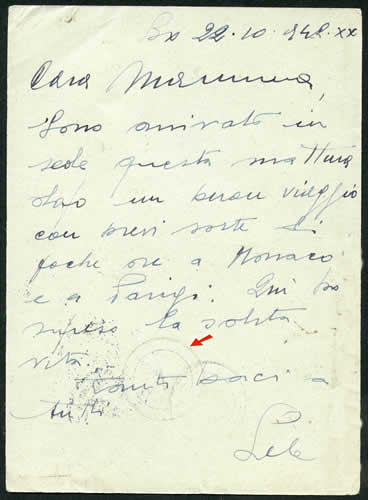 22.10.942.XX
Cara Mamma,
Sono arrivato in
sede questa mattina
dopo un buon viaggio
con brevi soste di
poche ore a Monaco
e a Parigi. Qui ho
ripreso la solita
vita.
Tanti baci a
tutti